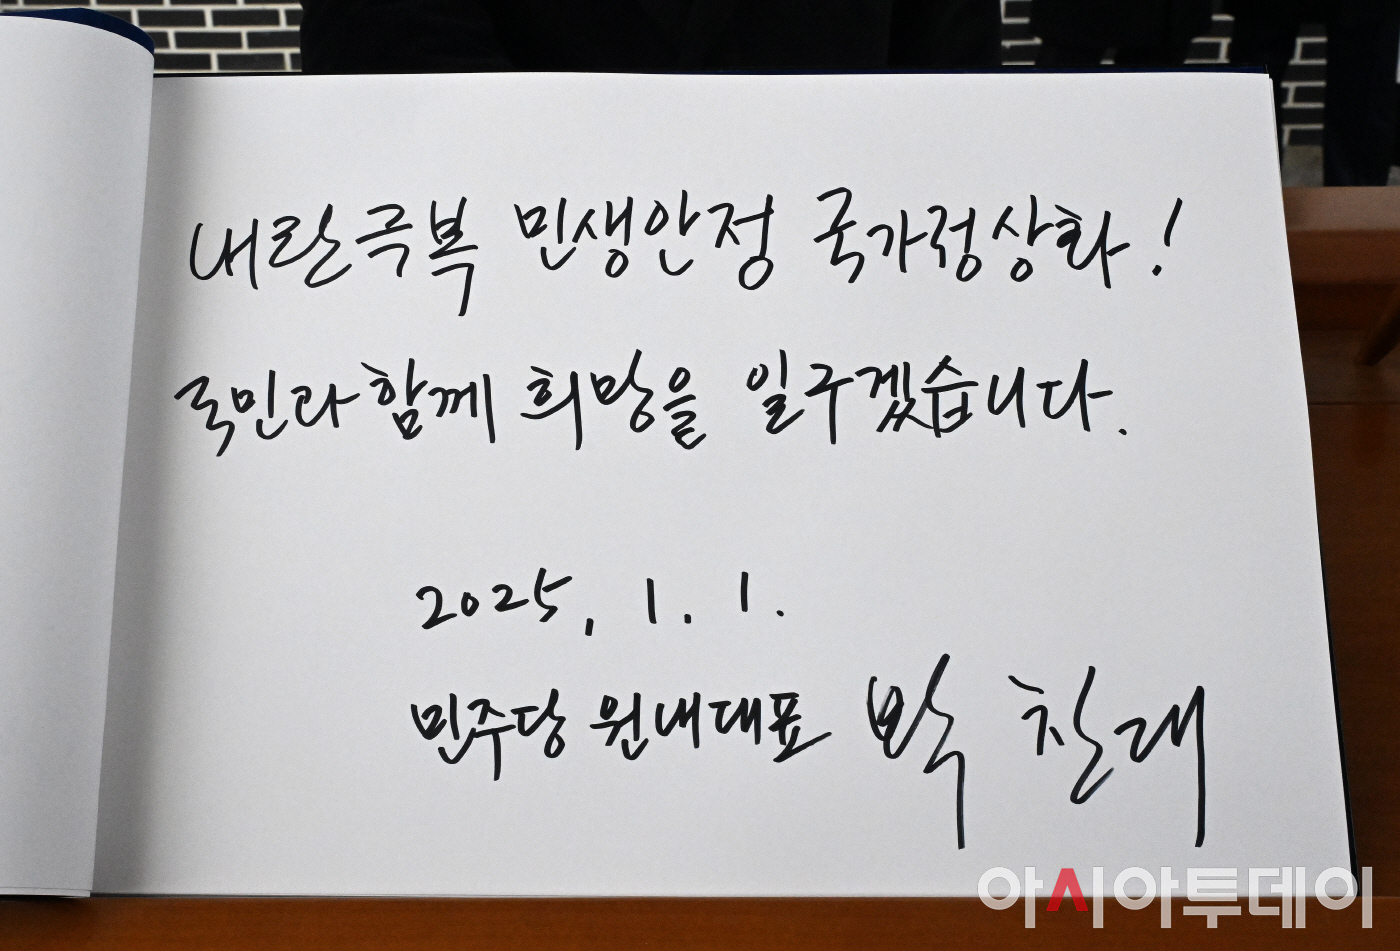 내란극복 민생안정 국가정상화!
국민과 함께 희망을 일구겠습니다.
2025, 1. 1.
민주당 원내대표 박찬대
아시아투데이